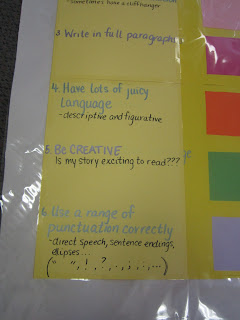 -sometimes have a cliffhanger
3. Write in full paragraphs
4. Have lots of juicy
language
-descriptive and figurative
5. Be CREATIVE
Is my story exciting to read???
6. Use a range of
punctuation correctly
-direct speech, sentence endings,
ellipses...
(" ", !, ?, ., ;, :, ...)